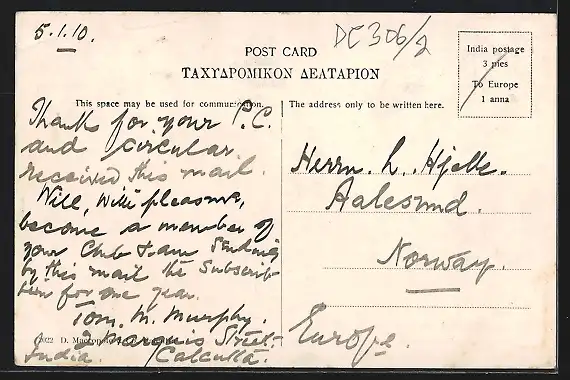 5.1.10.
DC306/2
POST CARD
ΤΑΧΥΔΡΟΜΙΚΟΝ ΔΕΛΤΑΡΙΟΝ
India postage
3 pies
To Europe
1 anna
This space may be used for communication.
The address only to be written here.
Thanks for your P.C.
and circular
received this mail.
Will, with pleasure,
become a member of
your Club & am sending
by this mail the Subscrip
tion for one year.
Tom. M. Murphy.
2 Marquis Street.
Calcutta.
India.
D. Macropolo
Herrn. L. Hjelle.
Aalesund.
Norway.
Europe.